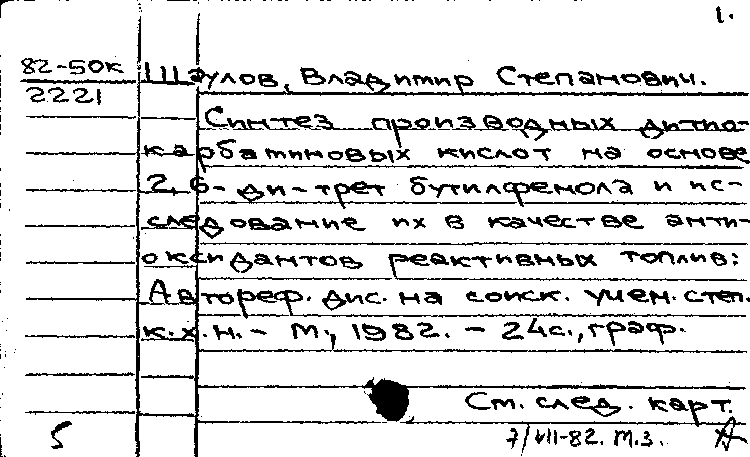 1.
82-50к Шаулов, Владимир Степанович.
2221
Синтез производных дитио-
карбаминовых кислот на основе
2,6-ди-трет бутилфенола и ис-
следование их в качестве анти-
оксидантов реактивных топлив:
Автореф. дис. на соиск. учен. степ.
к.х.н. - М., 1982. - 24с., граф.
См. след. карт.
5 7/VII-82. т.з.